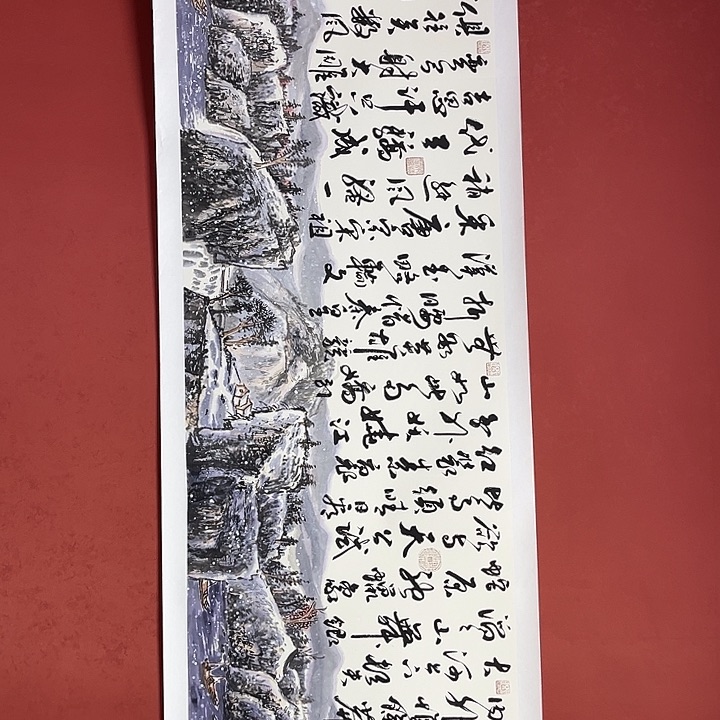 内外惟余莽
大河上下顿失
滔滔山舞银
蛇原驰蜡象
欲与天公试
比高须晴日
看红装素裹
分外妖娆江
山如此多娇引
无数英雄竞
折腰惜秦皇
汉武略输文
采唐宗宋祖
稍逊风骚一
代天骄成
吉思汗只识
弯弓射大雕
俱往矣数风